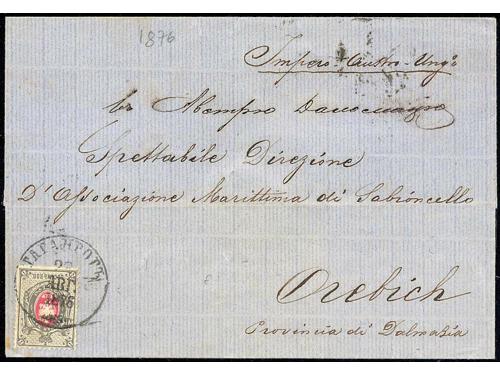 1876
Impero Austro-Ung°
Въ Австро
Spettabile Direzione
D'Associazione Marittima di Sabioncello
Orebich
Provincia di Dalmazia
ТАГАНРОГЪ
22
АВГ.
1876